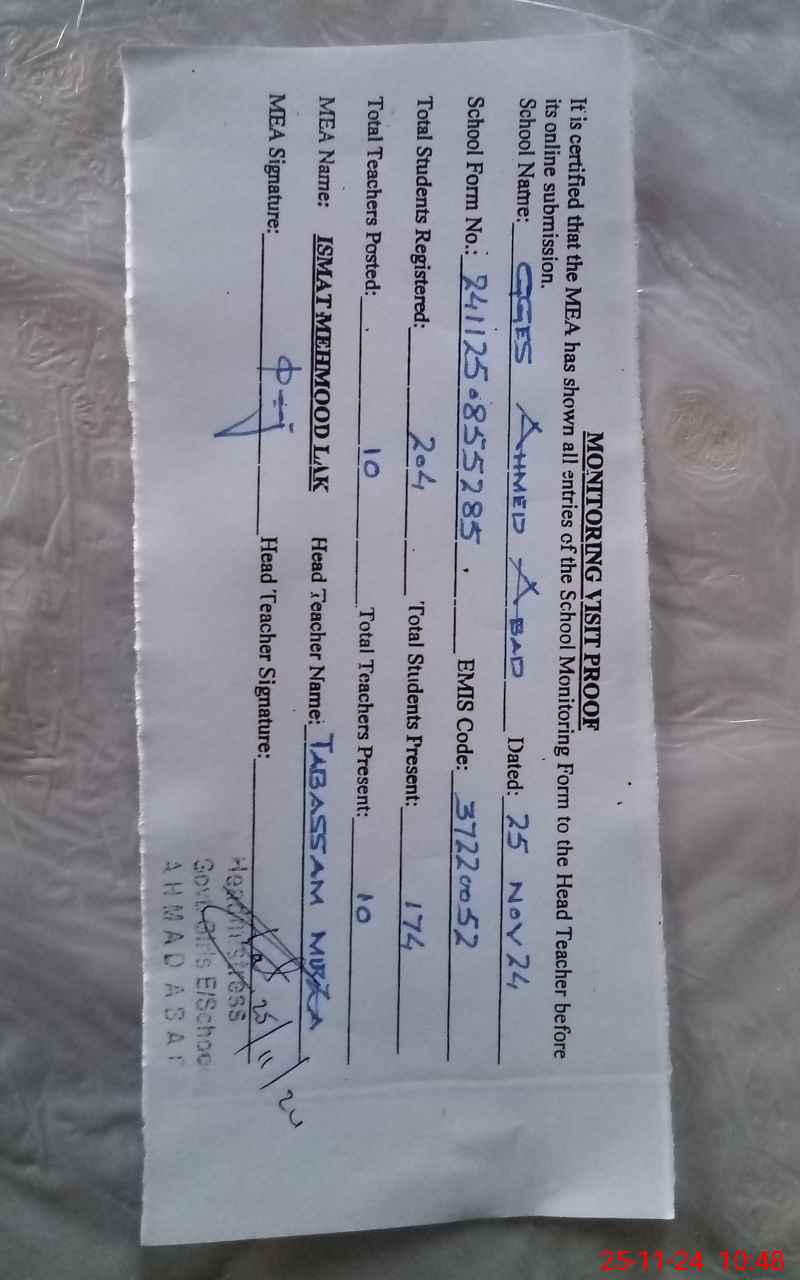 MONITORING VISIT PROOF
It is certified that the MEA has shown all entries of the School Monitoring Form to the Head Teacher before
its online submission.
School Name: GGES AHMED ABAD Dated: 25 NOV 24
School Form No.: 2411250855285 EMIS Code: 37220052
Total Students Registered: 204 Total Students Present: 174
Total Teachers Posted: 10 Total Teachers Present: 10
MEA Name: ISMAT MEHMOOD LAK Head Teacher Name: TABASSAM MIRZA
MEA Signature: Head Teacher Signature:
25/11/24
Headmistress
Govt. Girls E/School
AHMAD ABAD
25-11-24 10:48